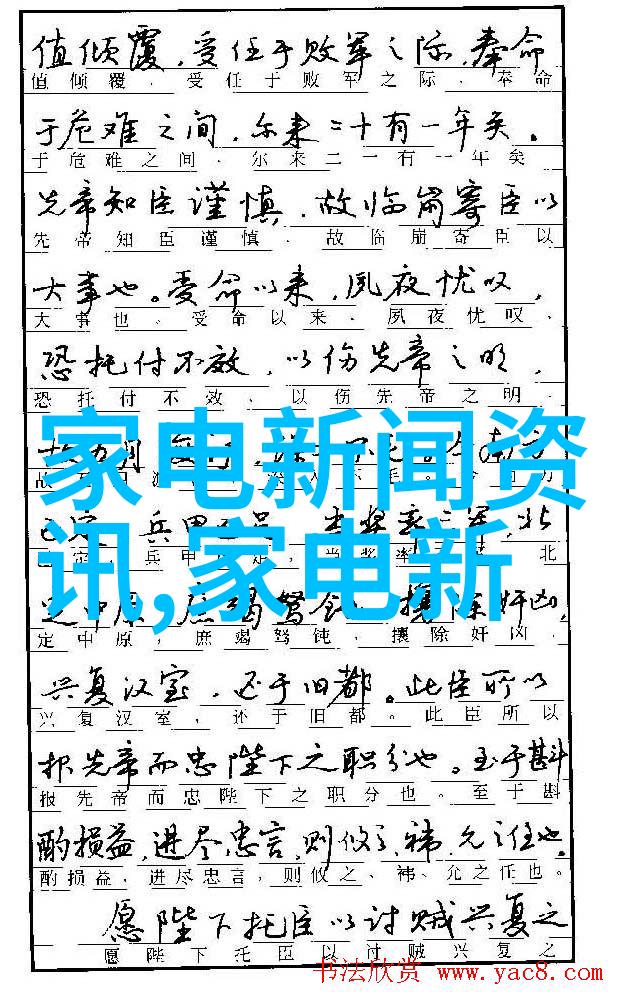 值倾覆，受任于败军之际，奉命
值倾覆，受任于败军之际，奉命
于危难之间，尔来二十有一年矣。
于危难之间，尔来二一有一年矣
先帝知臣谨慎，故临崩寄臣以
先帝知臣谨慎，故临崩寄臣以
大事也。受命以来，夙夜忧叹，
大事也，受命以来，夙夜忧叹，
恐托付不效，以伤先帝之明，
恐托付不效，以伤先帝之明，
家电新闻资
讯,家电新
兵甲
北
兵甲
北
定中原，庶竭驽钝，攘除奸凶，
定中原，庶竭驽钝，攘除奸凶，
兴复汉室，还于旧都。此臣所以
兴复汉室，还于旧都。此臣所以
报先帝而忠陛下之职分也。至于斟
报先帝而忠陛下之职分也。至于斟
酌损益，进尽忠言，则攸之、祎、允之任也。
酌损益，进尽忠言，则攸之、祎、允之任也。
愿陛下托臣以讨贼兴复之
愿陛下托臣以讨贼兴复之
书法欣赏 www.yac8.com